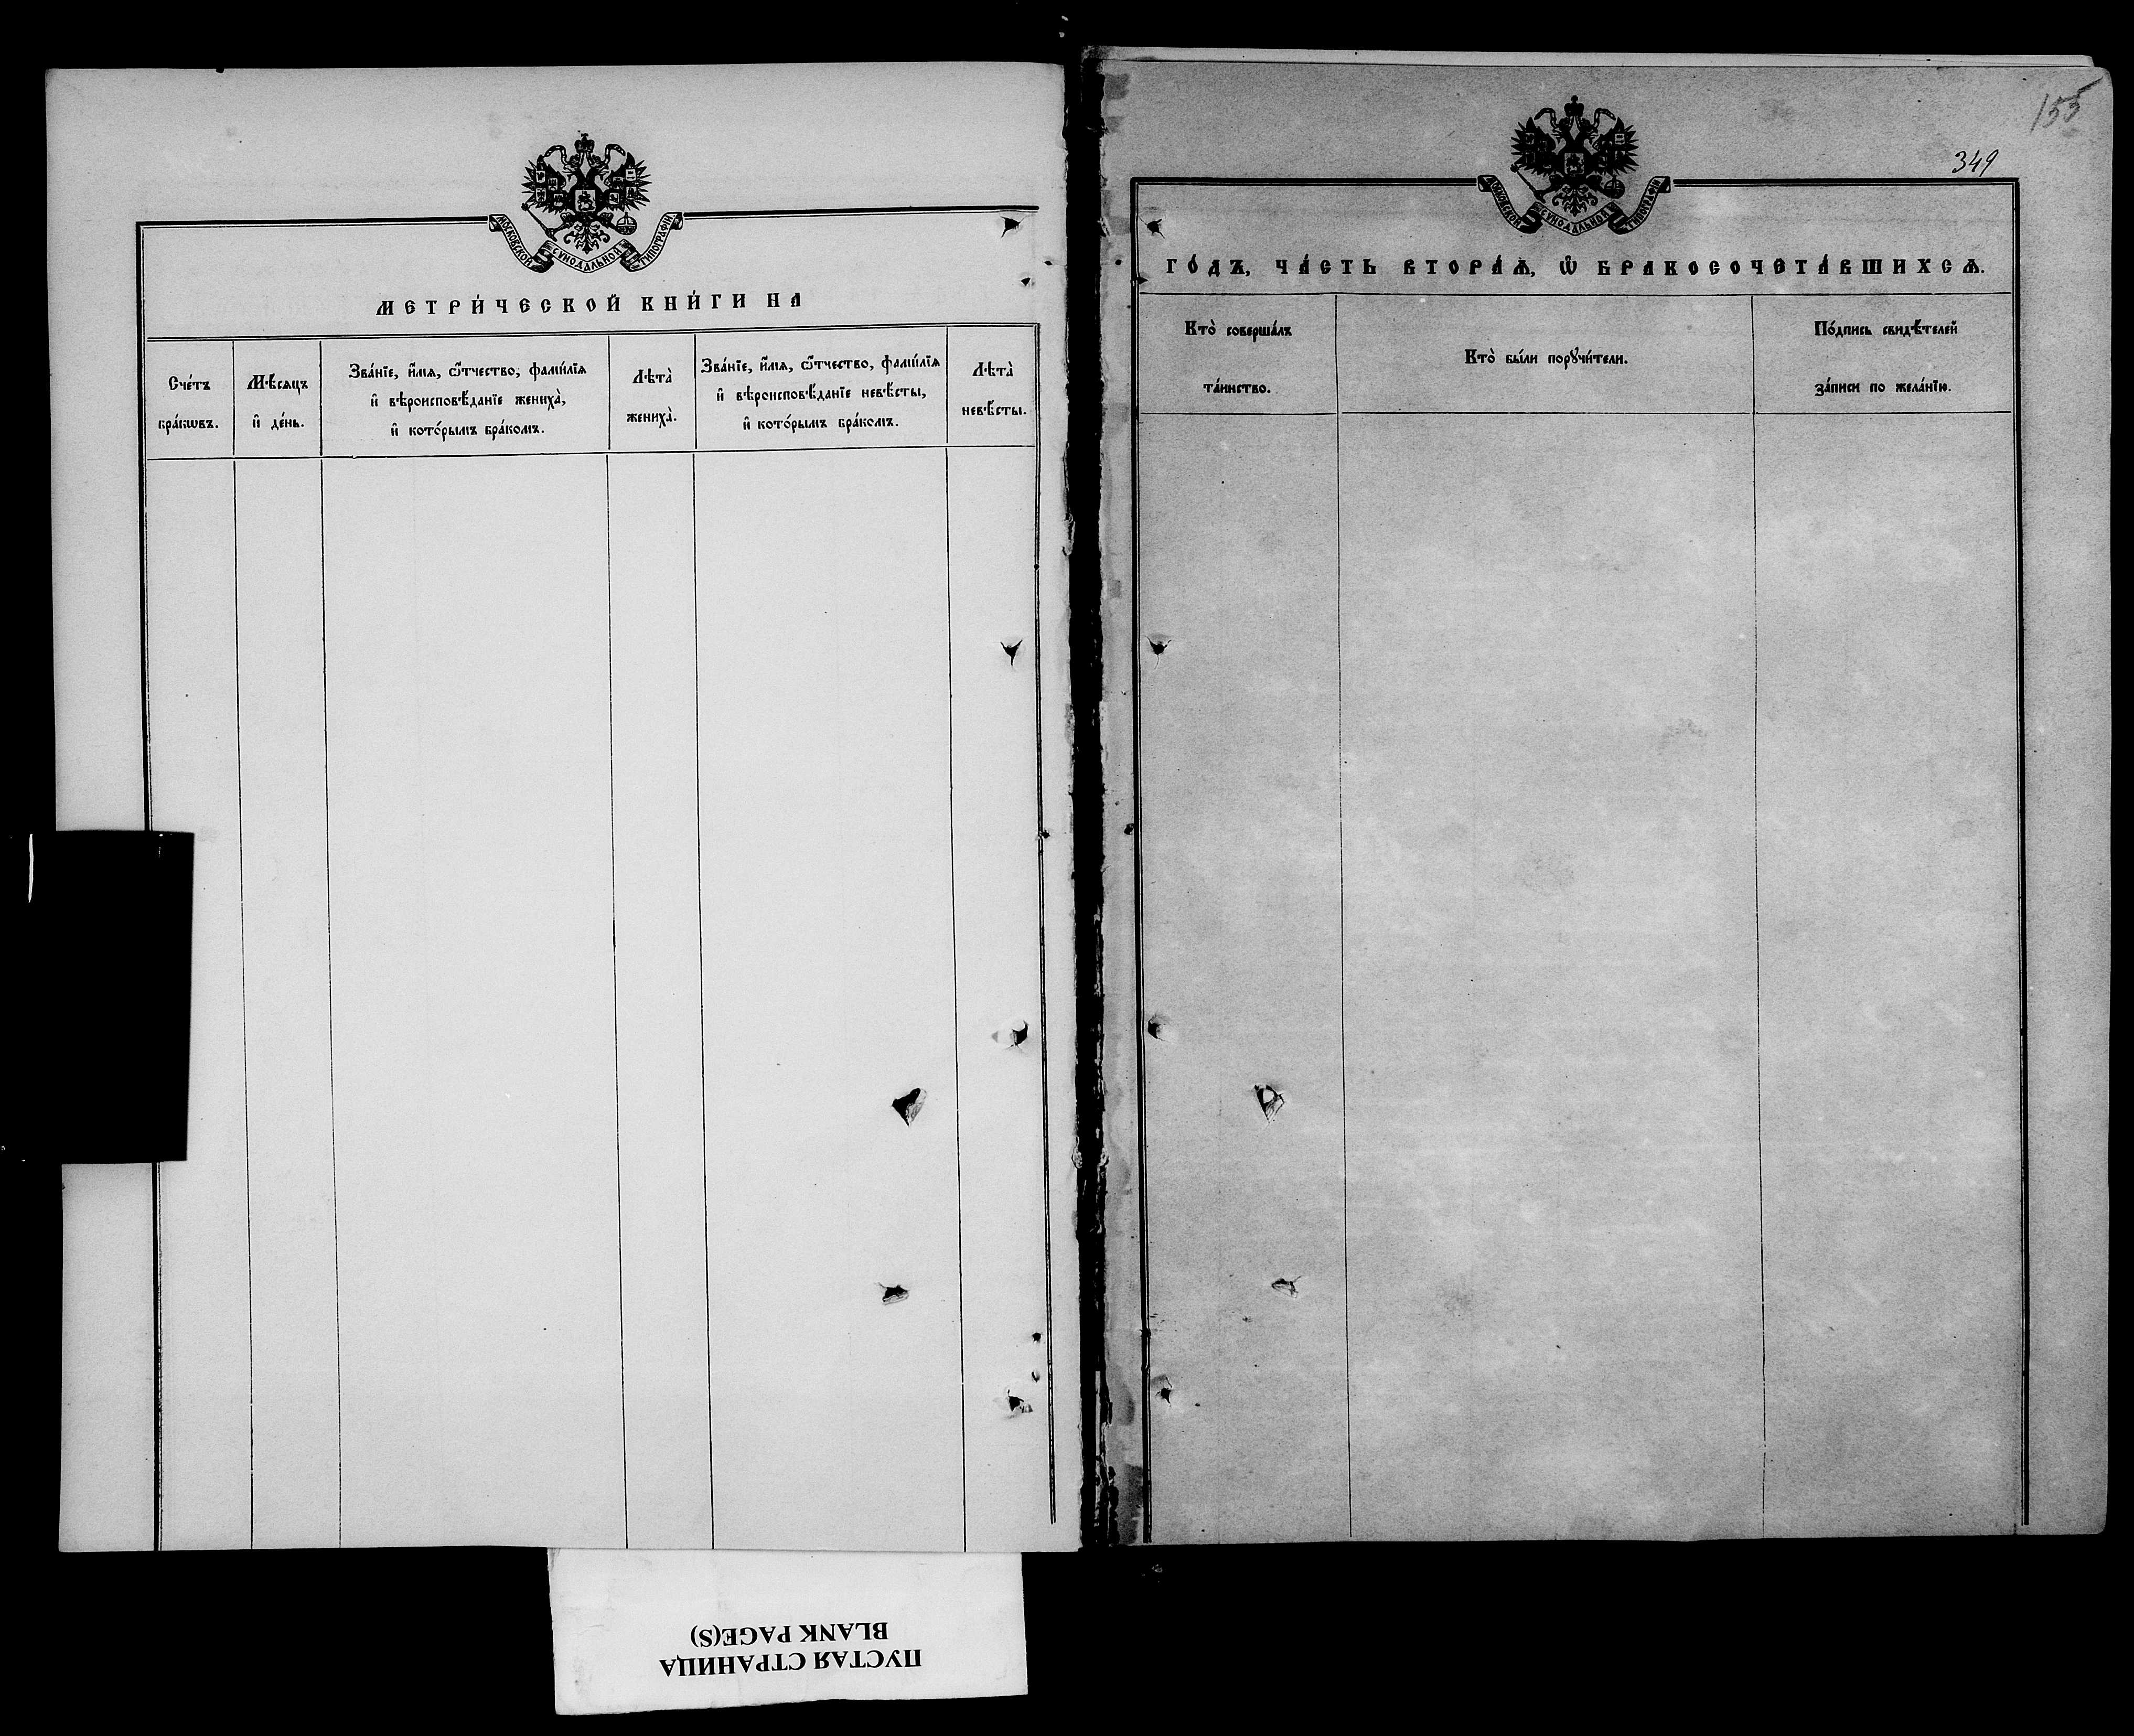 МОСКОВСКОЙ СѴНОДАЛЬНОЙ ТИПОГРАФІИ
МЕТРИ́ЧЕСКОЙ КНИ́ГИ НА
Сче́тъ
бра́кѡвъ.
Мѣ́сяцъ
и҆ де́нь.
Зва́нїе, и҆́мѧ, ѻ҆́тчество, фами́лїѧ
и҆ вѣроисповѣ́данїе жениха̀,
и҆ кото́рымъ бра́комъ.
Лѣта̀
жениха̀.
Зва́нїе, и҆́мѧ, ѻ҆́тчество, фами́лїѧ
и҆ вѣроисповѣ́данїе невѣ́сты,
и҆ кото́рымъ бра́комъ.
Лѣта̀
невѣ́сты.
155
349
МОСКОВСКОЙ СѴНОДАЛЬНОЙ ТИПОГРАФІИ
ГО́ДЪ, ЧА́СТЬ ВТОРА́Ѧ, Ѡ҆ БРАКОСОЧЕТА́ВШИХСѦ.
Кто̀ соверша́лъ
та́инство.
Кто̀ бы́ли порꙋчи́тели.
По́дпись свидѣ́телей
за́писи по жела́нїю.
ПУСТАЯ СТРАНИЦА
BLANK PAGE(S)